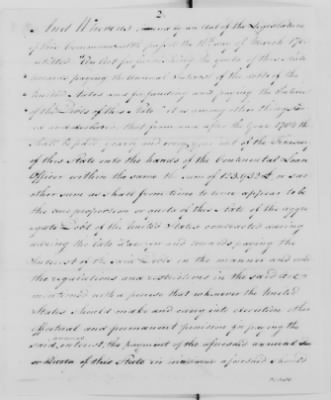 2.
And Whereas by an Act of the Legislature
of this Commonwealth passed the 16th day of March 178
entitled "An Act for furnishing the quota of this State
towards paying the annual Interest of the debts of the
United States and for funding and paying the Interest
of the Debts of this State" it is among other things
and declared that from and after the Year 178
shall be paid yearly and every year out of the Treasury
of this State into the hands of the Continental Loan
Officer within the same the sum of 123,932 or such
other sum as shall from time to time appear to be
the due proportion or quota of this State of the aggre
gate Debt of the United States contracted during
the late War and towards paying the
Interest of the said Debt in the manner and with
the regulations and restrictions in the said Act
mentioned with a proviso that whenever the United
States should make and carry into execution other
effectual and permanent provision for paying the
said annual interest, the payment of the aforesaid annual
or Quota of this State in manner aforesaid should